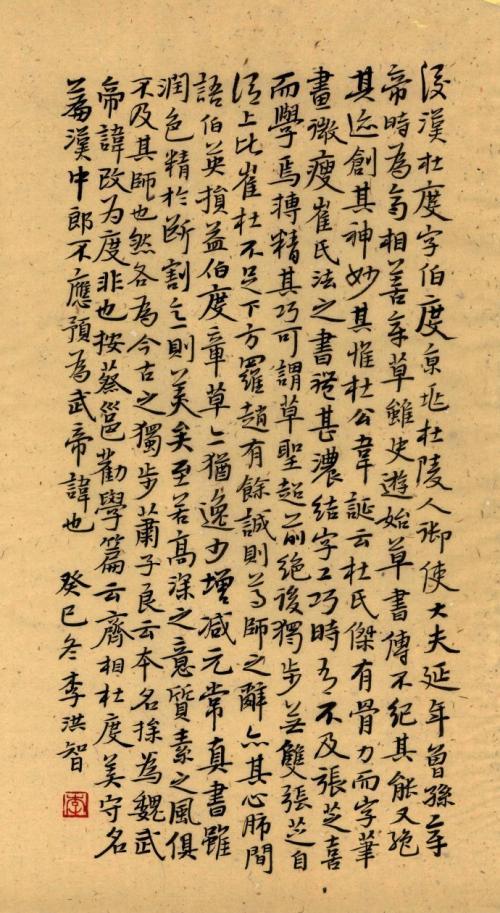 後漢杜度字伯度京兆杜陵人御使大夫延年曾孫章
帝時為齊相善章草雖史遊始草書傳不紀其能又絕
其迹創其神妙其惟杜公韋誕云杜氏傑有骨力而字筆
畫微瘦崔氏法之書體甚濃結字工巧時有不及張芝喜
而學焉轉精其巧可謂草聖超前絕後獨步無雙張芝自
謂上比崔杜不足下方羅趙有餘誠則尊師之辭亦其心肺間
語伯英損益伯度章草亦猶逸少增減元常真書雖
潤色精於斷割意則美矣至若高深之意質素之風俱
不及其師也然各為今古之獨步蕭子良云本名操為魏武
帝諱改為度非也按蔡邕勸學篇云齊相杜度美守名
篇漢中郎不應預為武帝諱也 癸巳冬李洪智
李